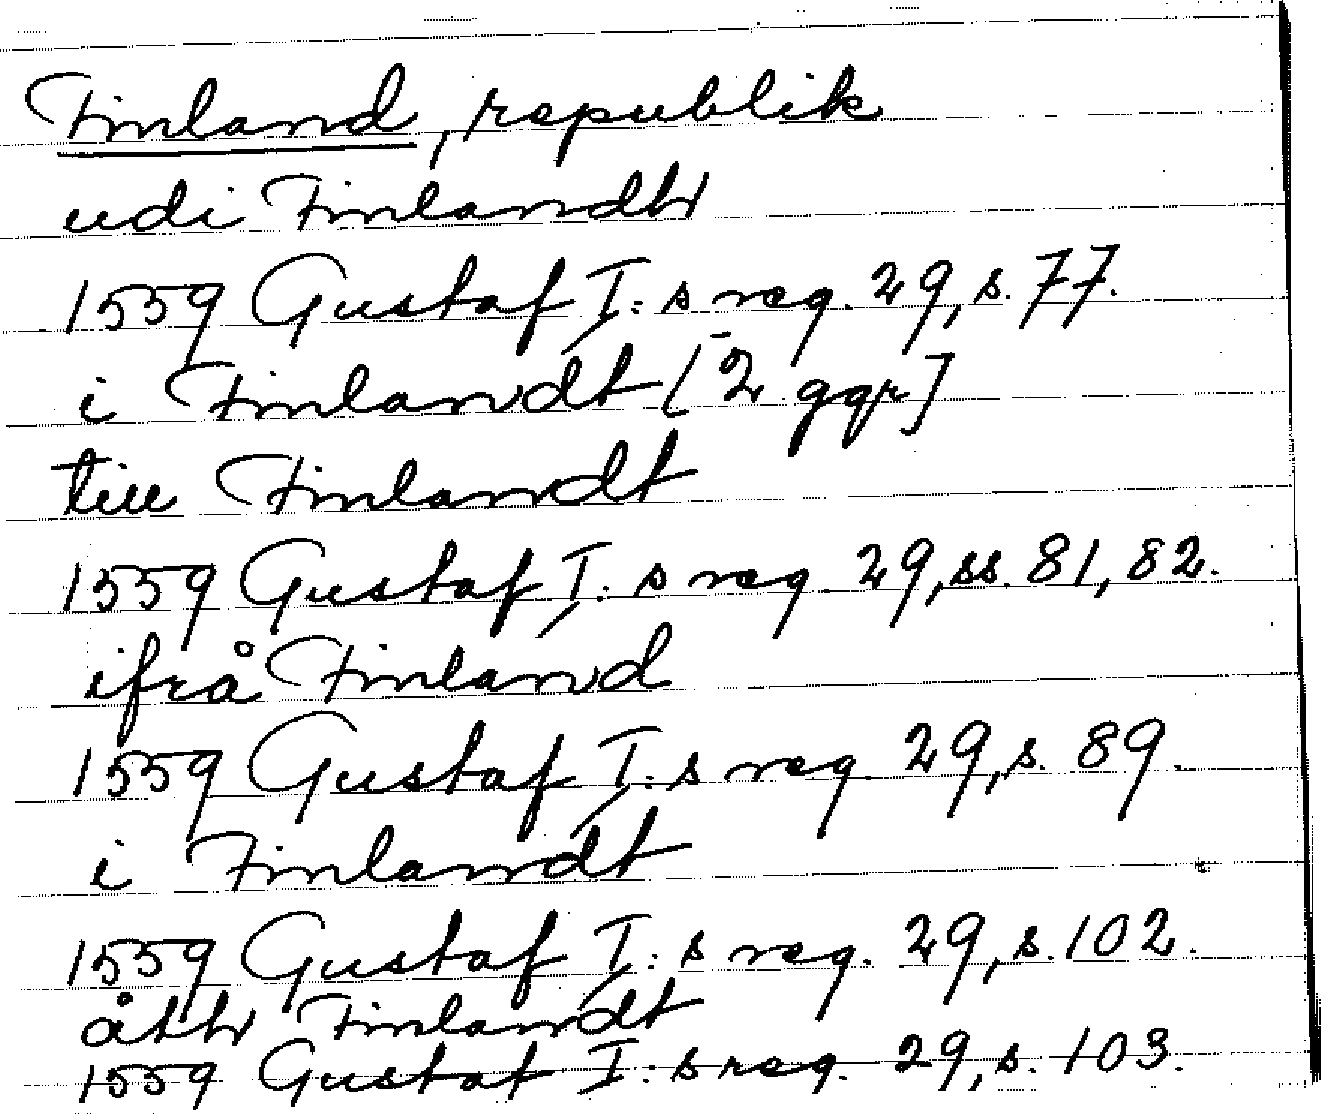 Finland, republik
udi Finlandh
1559 Gustaf I:s reg. 29, s. 77.
i Finlandt [2 ggr]
till Finlandt
1559 Gustaf I:s reg 29, ss. 81, 82.
ifrå Finland
1559 Gustaf I:s reg. 29, s. 89.
i Finlandt
1559 Gustaf I:s reg. 29, s. 102.
åth Finlandt
1559 Gustaf I:s reg. 29, s. 103.